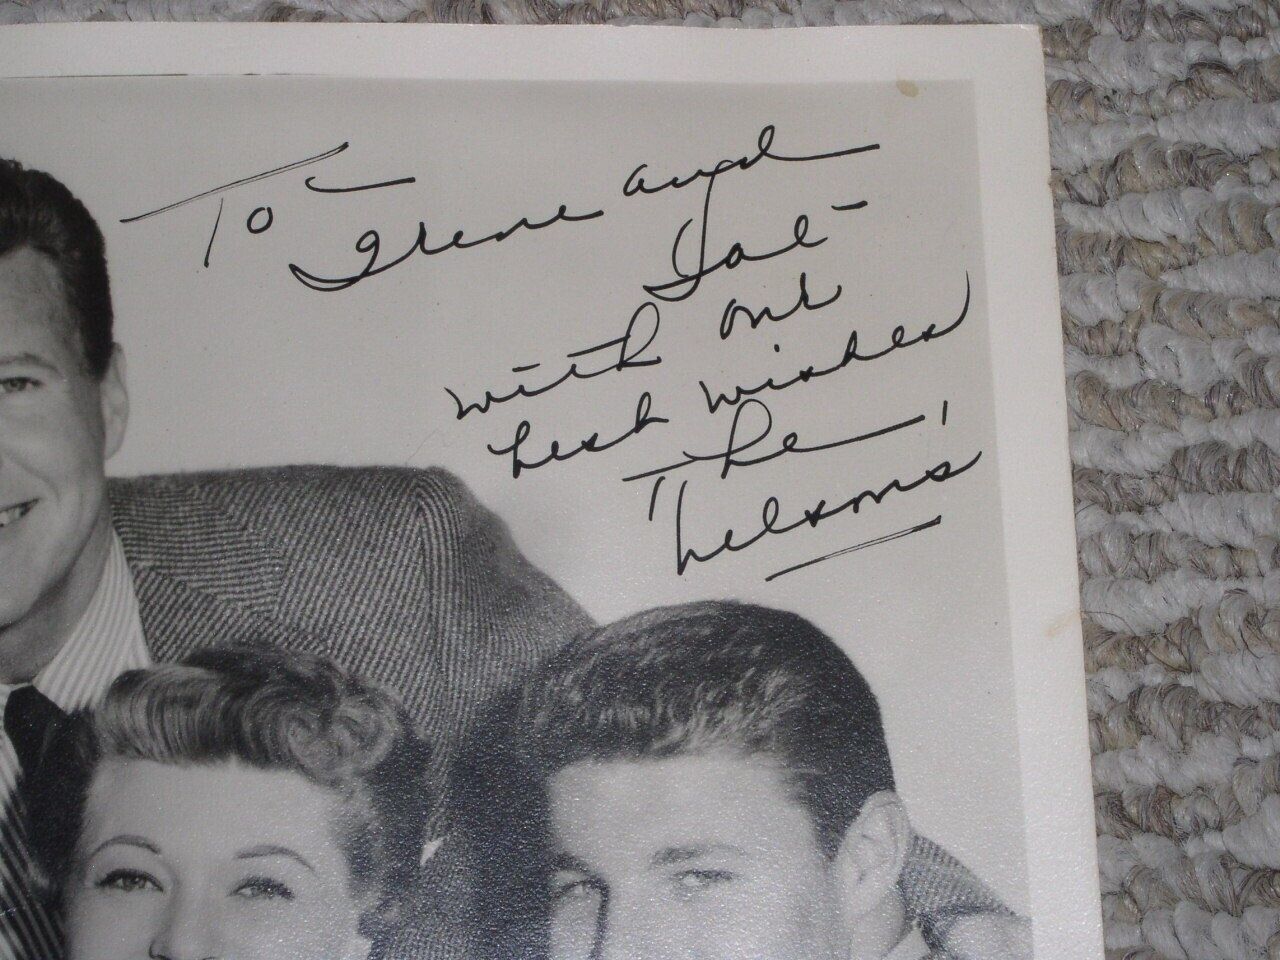 To
Irene and
with our
best wishes
The
Nelsons